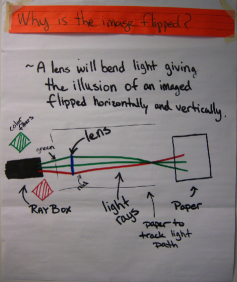 Why is the image flipped?
~ A lens will bend light giving
the illusion of an imaged
flipped horizontally and vertically.
color filters
green
lens
red
RAY BOX
light
rays
paper to
track light
path
Paper